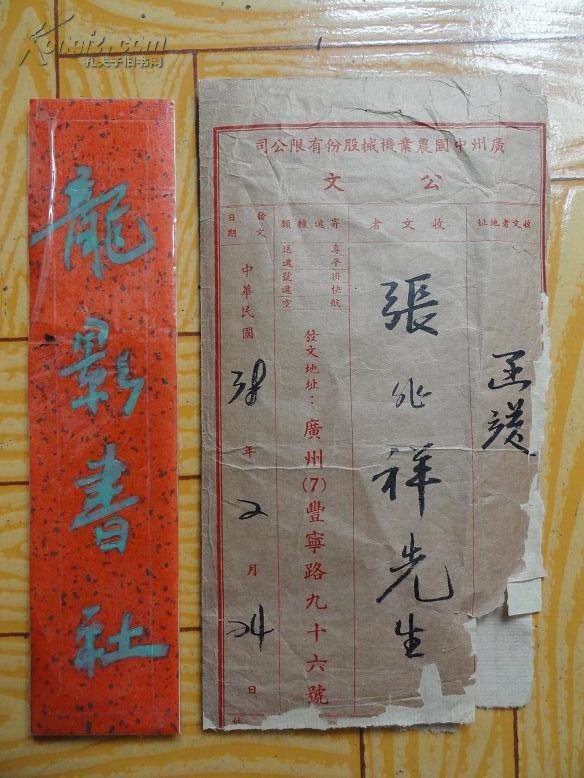 Kongfz.com
孔夫子旧书网
龍影書社
司公限有份股械機業農國中州廣
文公
址地者文收
者文收
類種遞寄
期日文發
函漢
張兆祥先生
專平掛快航
送遞號遞空
發文地址：廣州(7)豐寧路九十六號
中華民國38年2月24日